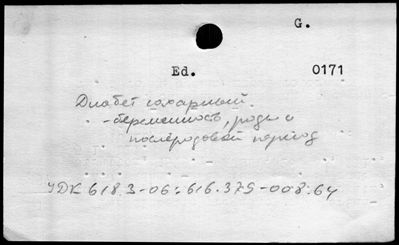 G.
Ed. 0171
Диабет сахарный.
-беременность, роды и
послеродовой период
УДК 618.3-06:616.379-008.64